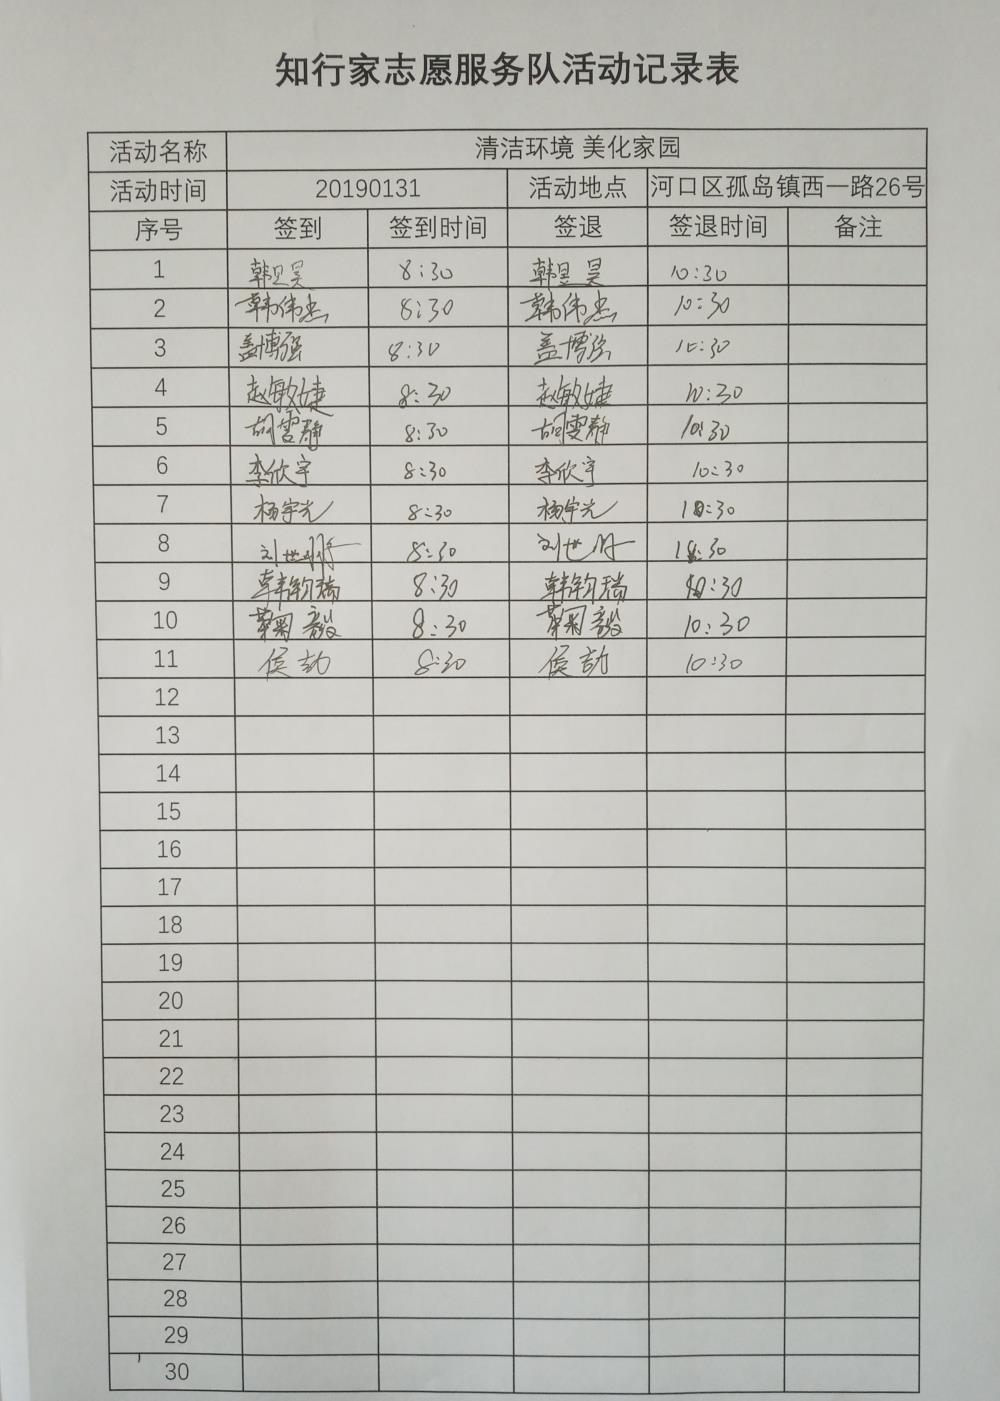 知行家志愿服务队活动记录表
活动名称 清洁环境 美化家园
活动时间 20190131 活动地点 河口区孤岛镇西一路26号
序号 签到 签到时间 签退 签退时间 备注
1 韩昱昊 8:30 韩昱昊 10:30
2 韩伟杰 8:30 韩伟杰 10:30
3 盖博强 8:30 盖博强 10:30
4 赵敏婕 8:30 赵敏婕 10:30
5 胡雪静 8:30 胡雪静 10:30
6 李欣宇 8:30 李欣宇 10:30
7 杨宇光 8:30 杨宇光 10:30
8 刘世 8:30 刘世 :30
9 韩钧瑞 8:30 韩钧瑞 10:30
10 毅 8:30 毅 10:30
11 侯劼 8:30 侯劼 10:30
12
13
14
15
16
17
18
19
20
21
22
23
24
25
26
27
28
29
30